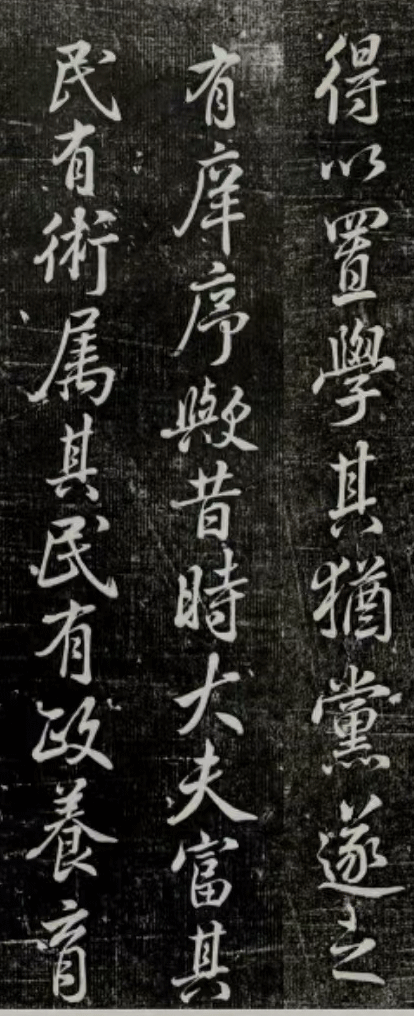 得以置學其猶黨遂之
有庠序歟昔時大夫富其
民有術属其民有政養育